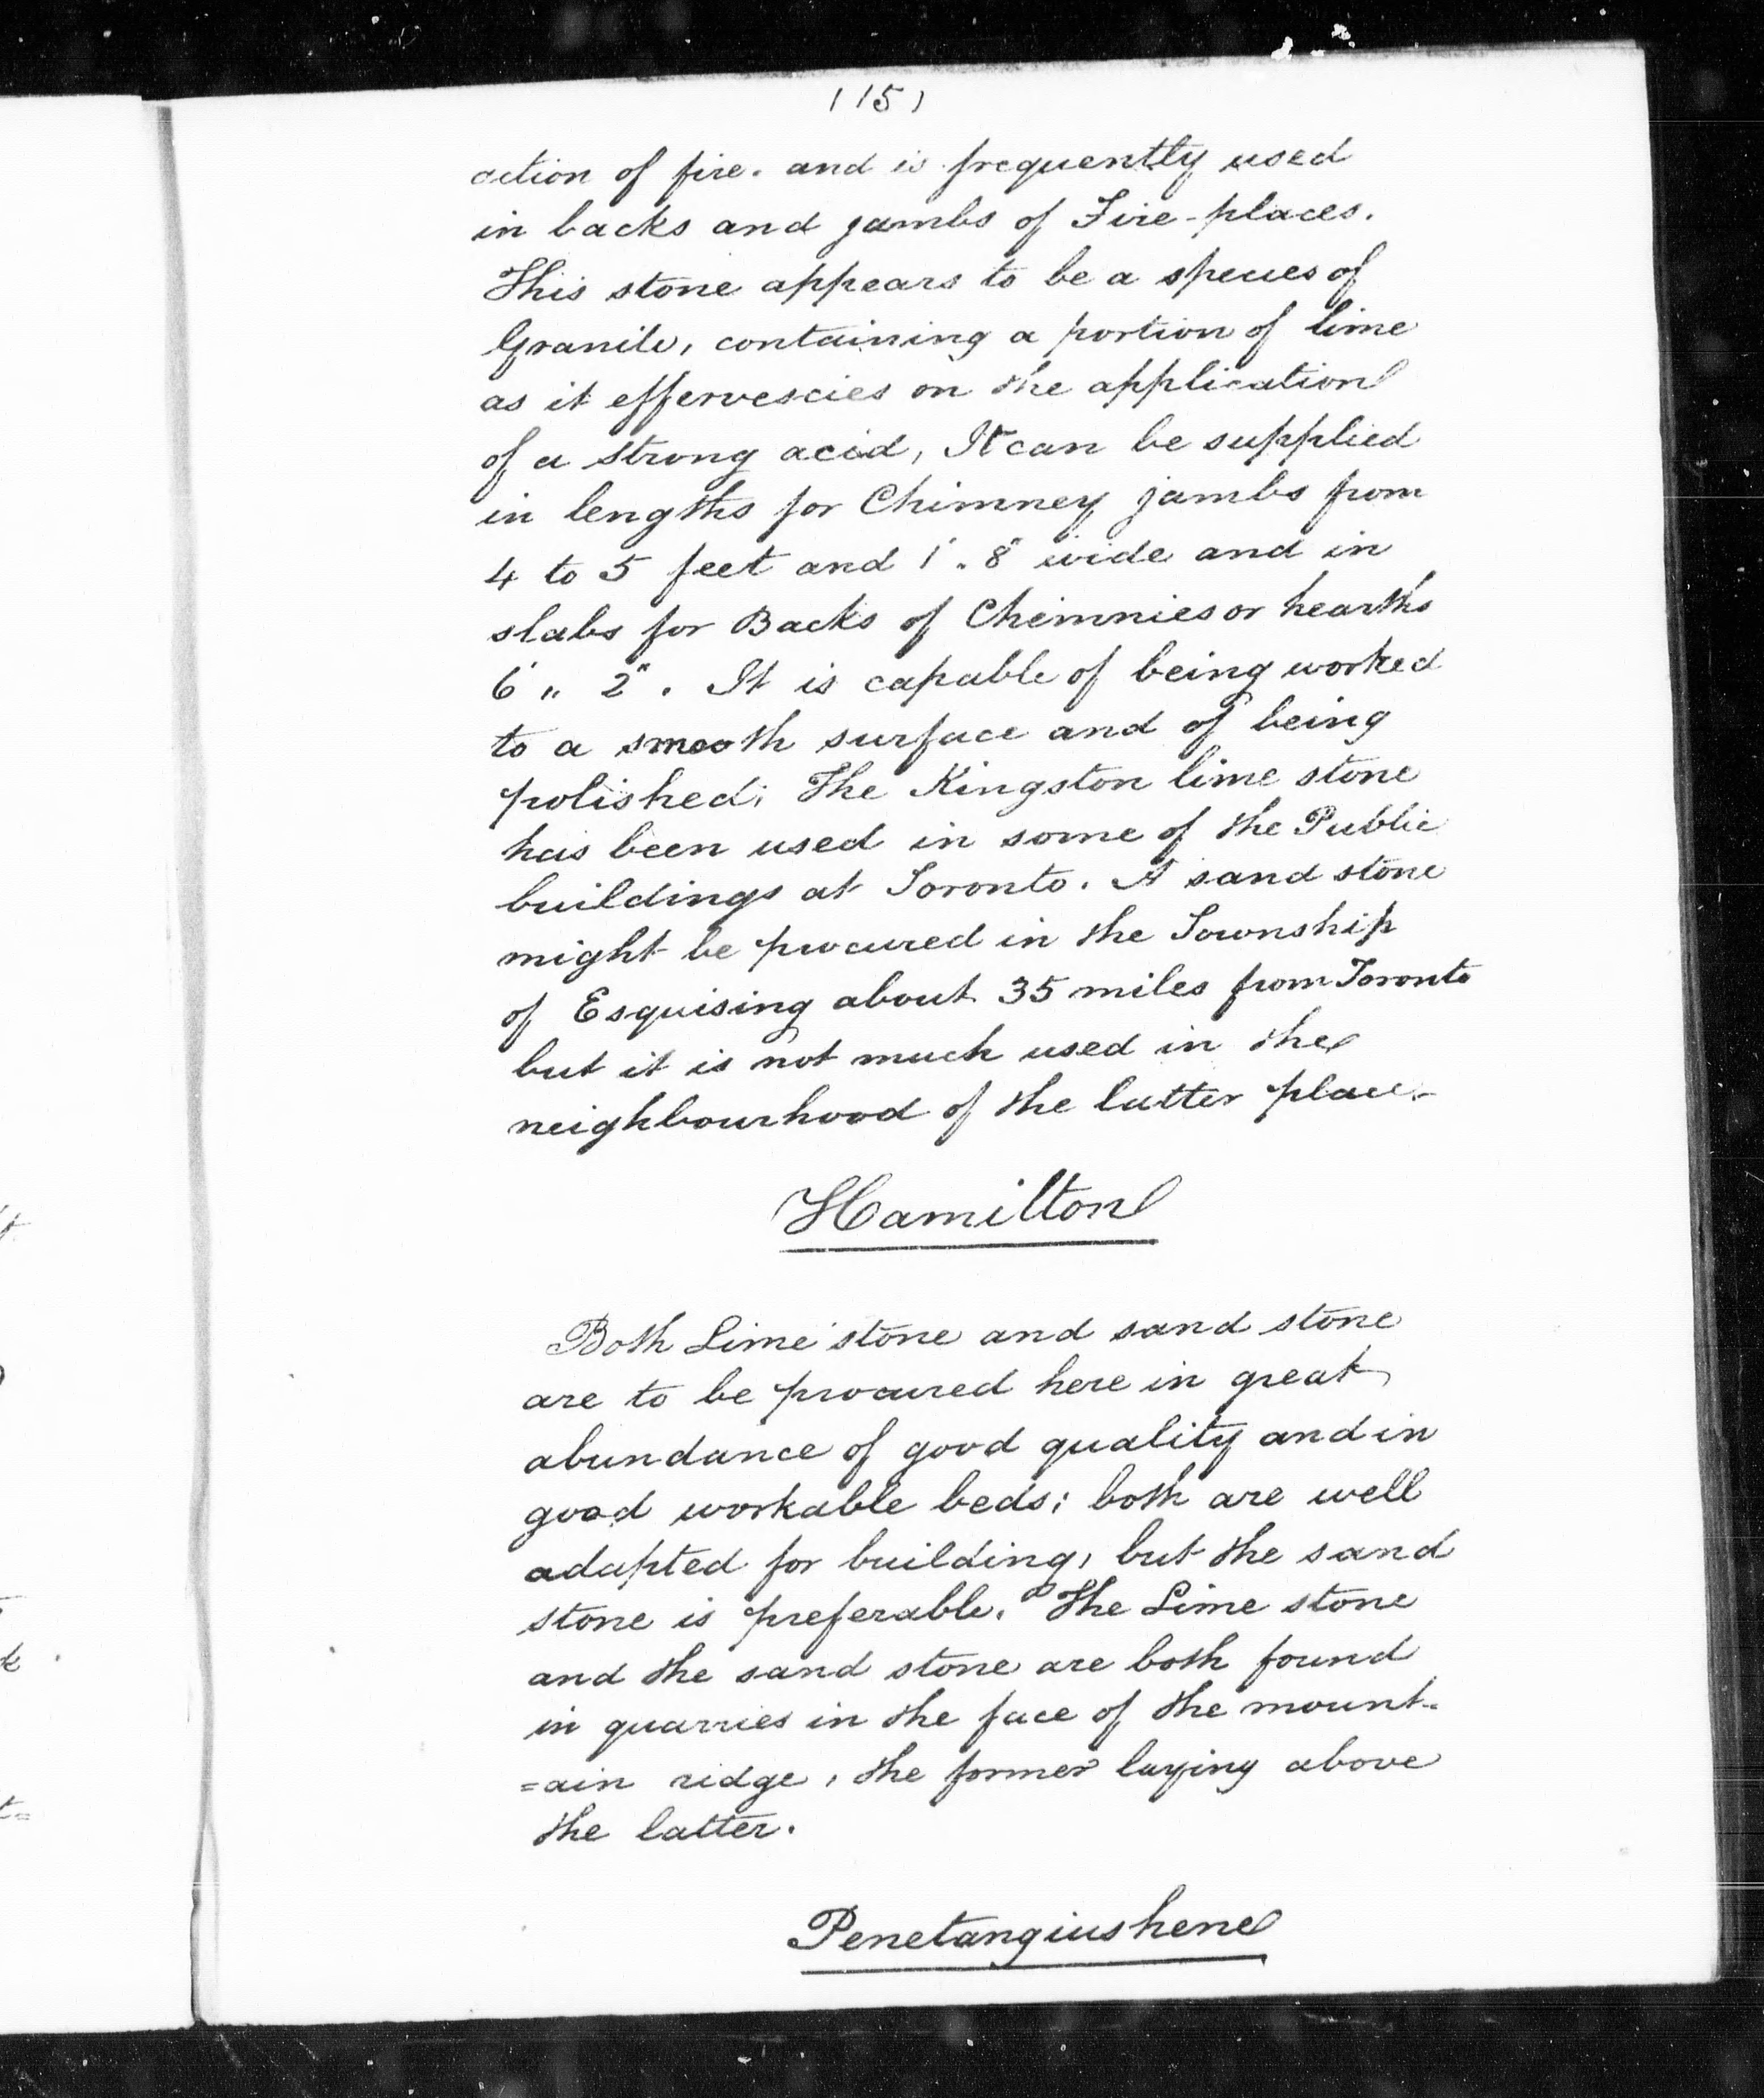 (15)
action of fire. and is frequently used
in backs and jambs of Fire-places.
This stone appears to be a species of
Granite, containing a portion of lime
as it effervescies on the application
of a strong acid, It can be supplied
in lengths for Chimney jambs from
4 to 5 feet and 1'. 8" wide and in
slabs for Backs of Chimnies or hearths
6' " 2". It is capable of being worked
to a smooth surface and of being
polished; The Kingston lime stone
has been used in some of the Public
buildings at Toronto. A sand stone
might be procured in the Township
of Esquising about 35 miles from Toronto
but it is not much used in the
neighbourhood of the latter place.
Hamilton
Both Lime stone and sand stone
are to be procured here in great
abundance of good quality and in
good workable beds; both are well
adapted for building, but the sand
stone is preferable. The Lime stone
and the sand stone are both found
in quarries in the face of the mount=
=ain ridge, the former laying above
the latter.
Penetangiushene